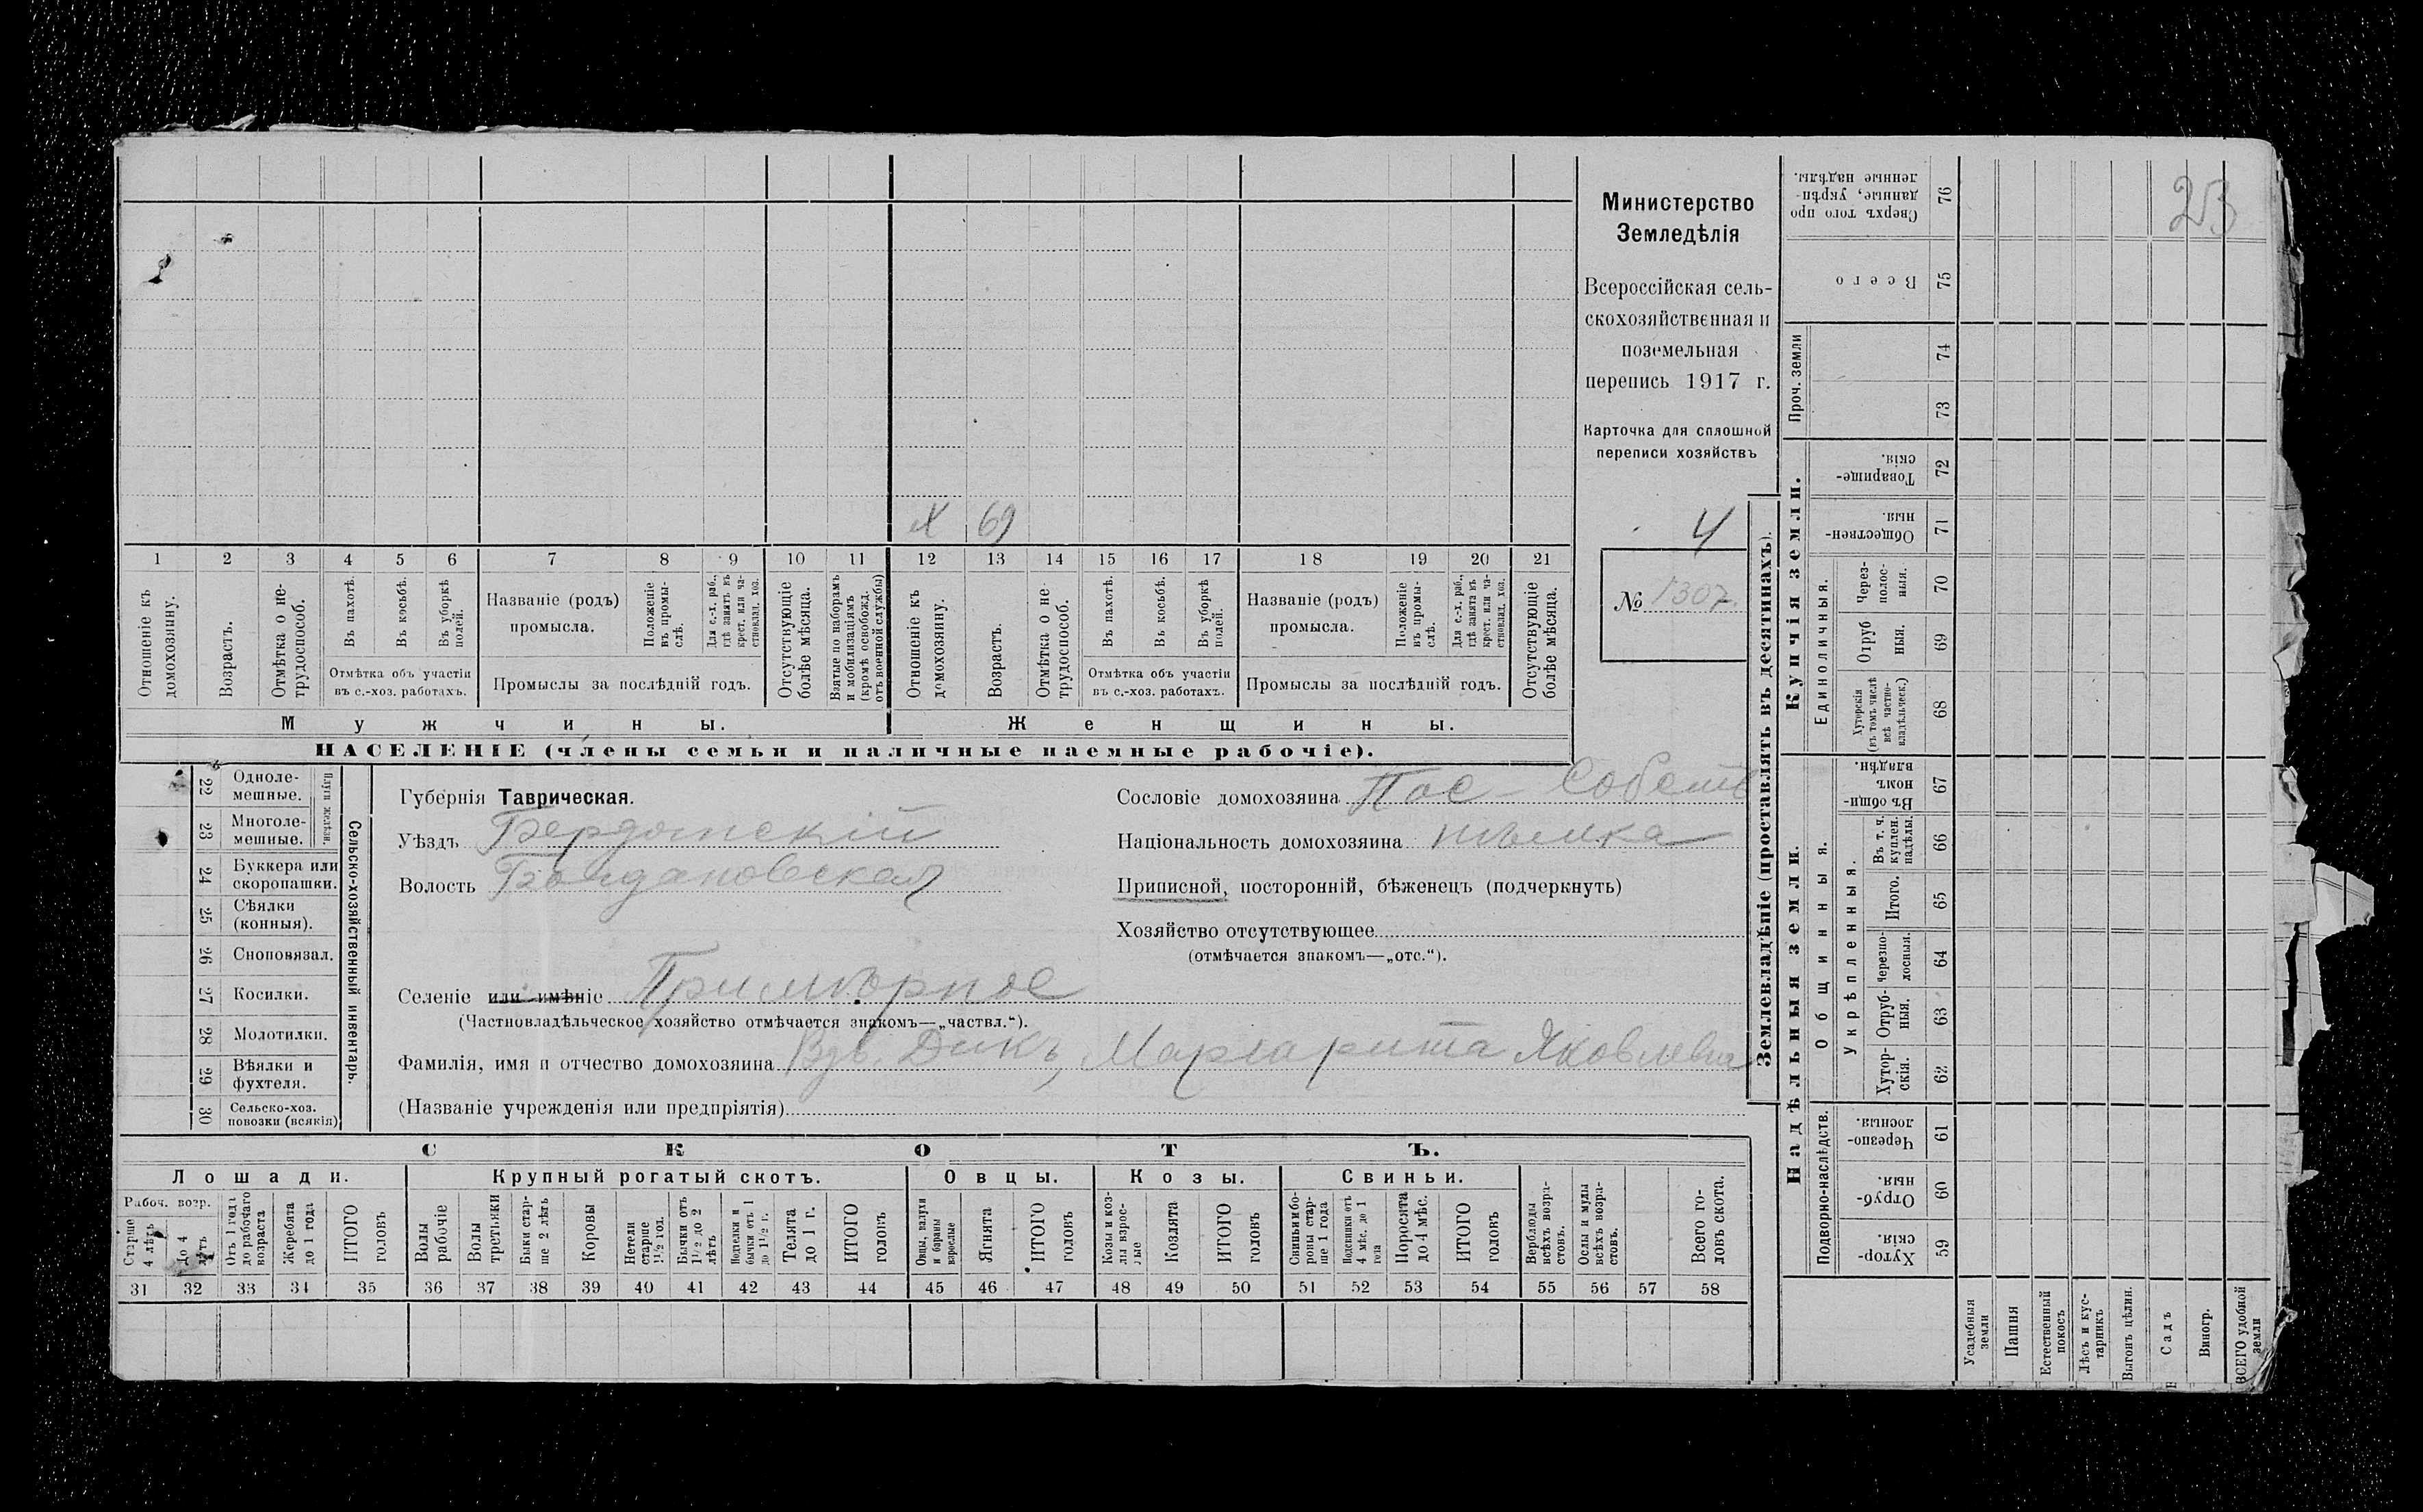 23
Министерство
Земледѣлія
Всероссійская сель-
скохозяйственная и
поземельная
перепись 1917 г.
Карточка для сплошной
переписи хозяйствъ
4
№ 1307
X 69
1 2 3 4 5 6 7 8 9 10 11 12 13 14 15 16 17 18 19 20 21
Отношеніе къ домохозяину.
Возрастъ.
Отмѣтка о не-трудоспособ.
Въ пахотѣ.
Въ косьбѣ.
Въ уборкѣ полей.
Отмѣтка объ участіи
въ с.-хоз. работахъ.
Названіе (родъ)
промысла.
Положеніе въ промы-слѣ.
Для с.-х. раб., гдѣ занятъ въ крест. или ча-стновлад. хоз.
Промыслы за послѣдній годъ.
Отсутствующіе болѣе мѣсяца.
Взятые по наборамъ и мобилизаціямъ (кромѣ освобожд. отъ военной службы)
Отношеніе къ домохозяину.
Возрастъ.
Отмѣтка о не трудоспособ.
Въ пахотѣ.
Въ косьбѣ.
Въ уборкѣ полей.
Отмѣтка объ участіи
въ с.-хоз. работахъ.
Названіе (родъ)
промысла.
Положеніе въ промы-слѣ.
Для с.-х. раб., гдѣ занята въ крест. или ча-стновлад. хоз.
Промыслы за послѣдній годъ.
Отсутствующіе болѣе мѣсяца.
Мужчины.
Женщины.
НАСЕЛЕНІЕ (члены семьи и наличные наемные рабочіе).
22 Одноле-мешные.
23 Многоле-мешные.
Плуги желѣзн.
24 Буккера или скоропашки.
25 Сѣялки (конныя).
26 Сноповязал.
27 Косилки.
28 Молотилки.
29 Вѣялки и фухтеля.
30 Сельско-хоз. повозки (всякія)
Сельско-хозяйственный инвентарь.
Губернія Таврическая.
Уѣздъ Бердянскій
Волость Богдановская
Сословіе домохозяина Пос-Собств
Національность домохозяина нѣмка
Приписной, посторонній, бѣженецъ (подчеркнуть)
Хозяйство отсутствующее
(отмѣчается знакомъ—„отс.“).
Селеніе или имѣніе
(Частновладѣльческое хозяйство отмѣчается знакомъ—„частвл.“).
Фамилія, имя и отчество домохозяина Вдв. Дикъ, Маргарита Яковлевна
(Названіе учрежденія или предпріятія)
СКОТЪ.
Лошади.
Крупный рогатый скотъ.
Овцы.
Козы.
Свиньи.
Рабоч. возр.
Старше 4 лѣтъ
до 4 лѣтъ
Отъ 1 года до рабочаго возраста
Жеребята до 1 года
ИТОГО головъ
Волы рабочіе
Волы третьяки
Быки стар-ше 2 лѣтъ
Коровы
Нетели старше 1½ год.
Бычки отъ 1½ до 2 лѣтъ
Подтелки и бычки отъ 1 до 1½ г.
Телята до 1 г.
ИТОГО головъ
Овцы, валухи и бараны взрослые
Ягнята
ИТОГО головъ
Козы и коз-лы взрос-лые
Козлята
ИТОГО головъ
Свиньи и бо-ровы стар-ше 1 года
Подсвинки отъ 4 мѣс. до 1 года
Поросята до 4 мѣс.
ИТОГО головъ
Верблюды всѣхъ возра-стовъ.
Ослы и мулы всѣхъ возра-стовъ.
Всего го-ловъ скота.
31 32 33 34 35 36 37 38 39 40 41 42 43 44 45 46 47 48 49 50 51 52 53 54 55 56 57 58
Землевладѣніе (проставлять въ десятинахъ).
Надѣльныя земли.
Купчія земли.
Проч. земли
Подворно-наслѣдств.
Общинныя.
Укрѣпленныя.
Единоличныя.
Хутор-скія. 59
Отруб-ныя. 60
Черезпо-лосныя. 61
Хутор-скія. 62
Отруб-ныя. 63
Черезпо-лосныя. 64
Итого. 65
Въ т. ч. куплен. надѣлы. 66
Въ общи-номъ владѣн. 67
Хуторскія (въ томъ числѣ всѣ частно-владѣльческ.) 68
Отруб ныя. 69
Через-полос-ныя. 70
Обществен-ныя. 71
Товарище-скія. 72
73
74
Всего 75
Сверхъ того про данные, укрѣп-ленные надѣлы. 76
Усадебныя земли
Пашня
Естественный покосъ
Лѣсъ и кус-тарникъ
Выгонъ цѣлин.
Садъ
Виногр.
ВСЕГО удобной земли